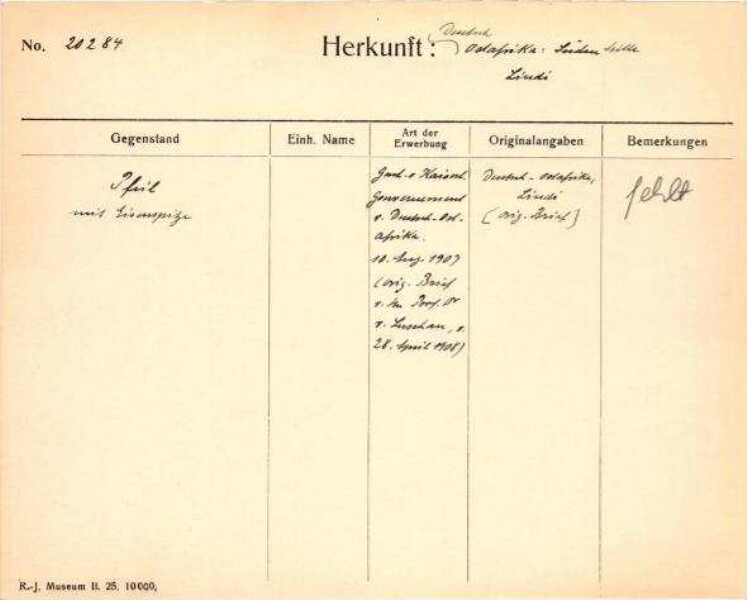 No. 20284
Herkunft: Deutsch
Ostafrika: Süden
Lindi
Gegenstand
Einh. Name
Art der
Erwerbung
Originalangaben
Bemerkungen
Pfeil
mit Eisenspitze
Gesch. v Kaiserl.
Gouvernement
v. Deutsch-Ost-
afrika.
10. Aug. 1907
(orig. Brief
v. Hn Prof. Dr
v. Luschan, v.
28. April 1908)
Deutsch-Ostafrika,
Lindi
[orig. Brief]
fehlt
R.-J. Museum II. 25. 10000.